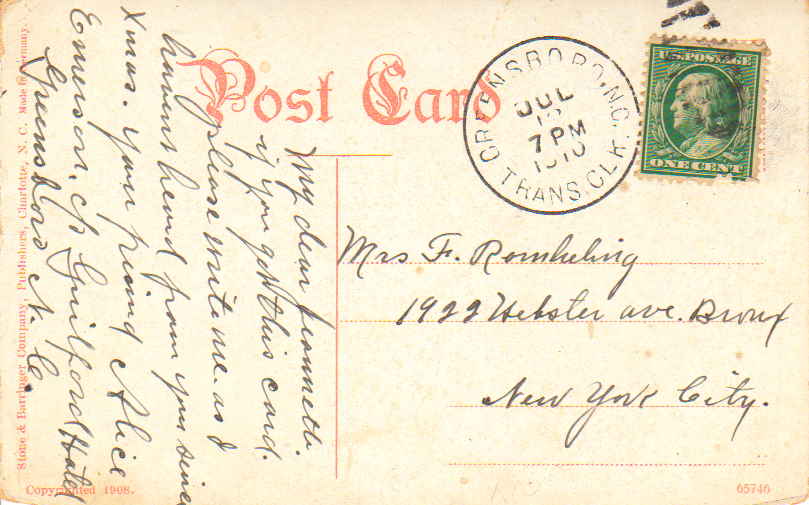 Post Card
GREENSBORO, N.C.
JUL
7 PM
1910
TRANS. CLK.
U.S. POSTAGE
ONE CENT
Mrs F. Romheling
1922 Webster ave. Bronx
New York City.
My dear Jeannett.
if you get this card.
please write me as I
havent heard from you since
Xmas. your friend Alice
Emerson, Guilford Hotel
Greensboro N. C.
Stone & Barringer Company, Publishers, Charlotte, N. C. Made in Germany.
Copyrighted 1908.
65746